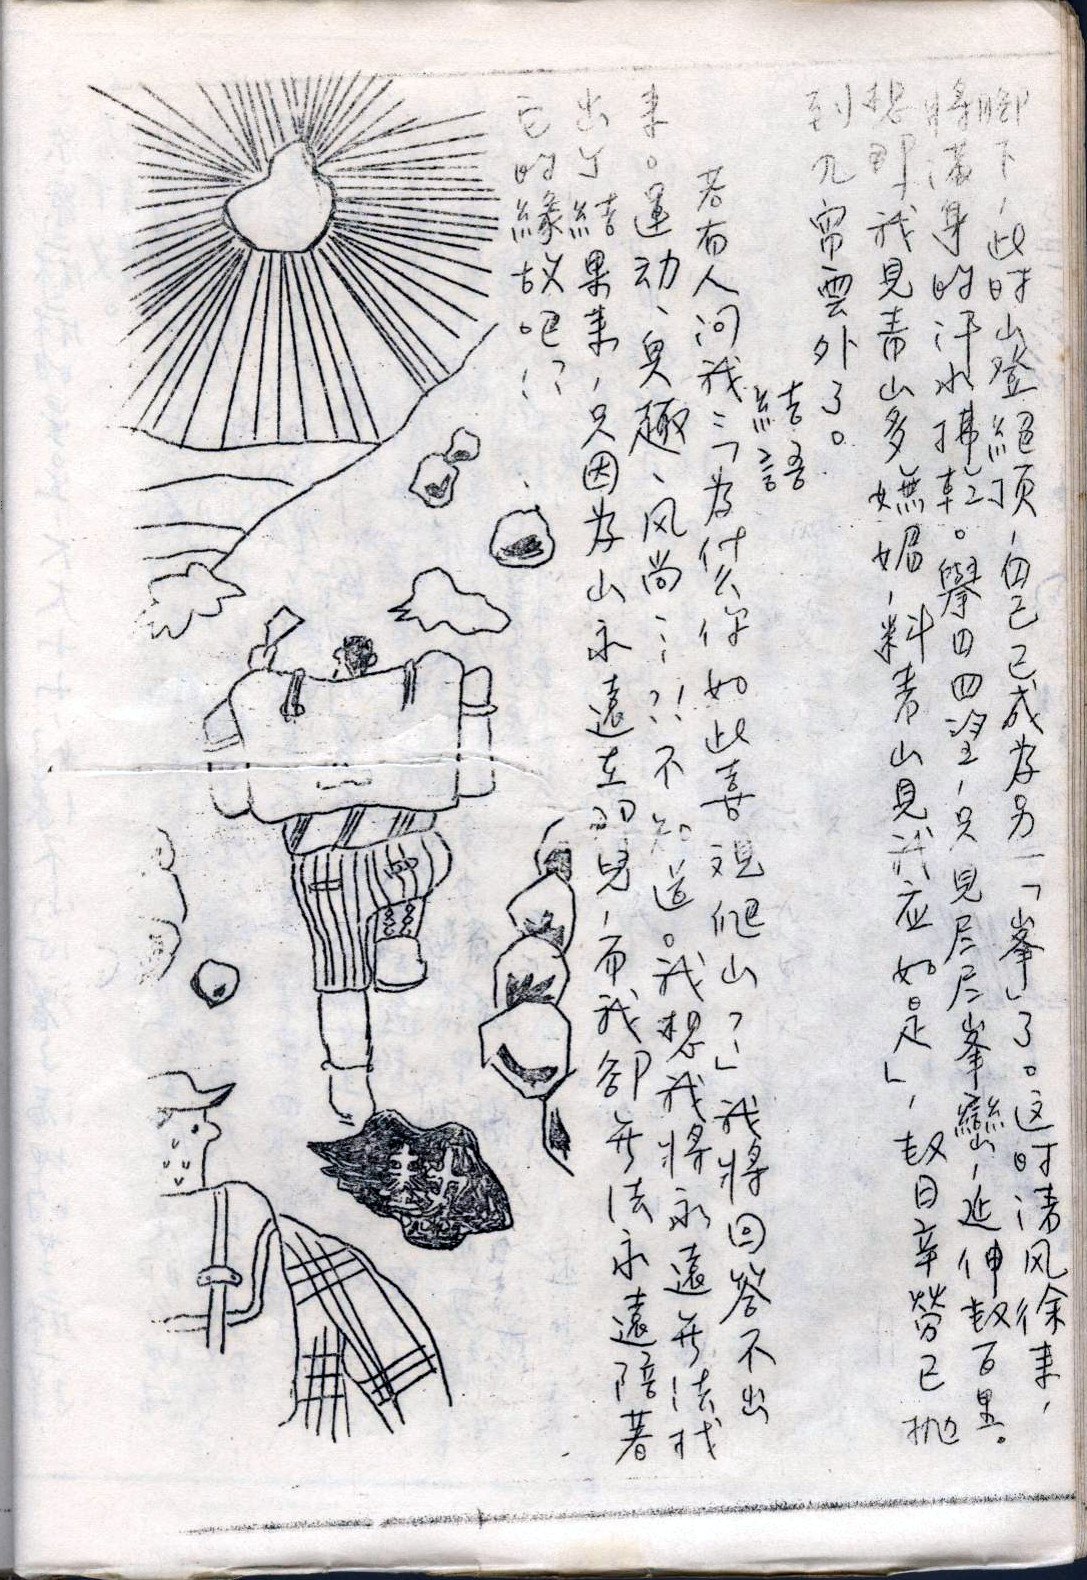 腳下，此时山登絕頂，自己已成为另一「峯」了。这时清风徐来，
將满身的汗水拂乾。舉目四望，只見层层峯巒，延伸数百里。
想那「我見青山多嫵媚，料青山見我应如是」，数日辛勞已抛
到九霄雲外了。
結語
若有人问我：「为什么你如此喜歡爬山？」我將回答不出
来。運动、兴趣、风尚……？！不知道。我想我將永遠无法找
出了結果来，只因为山永遠在那兒，而我卻无法永遠陪著
它的緣故吧！？……